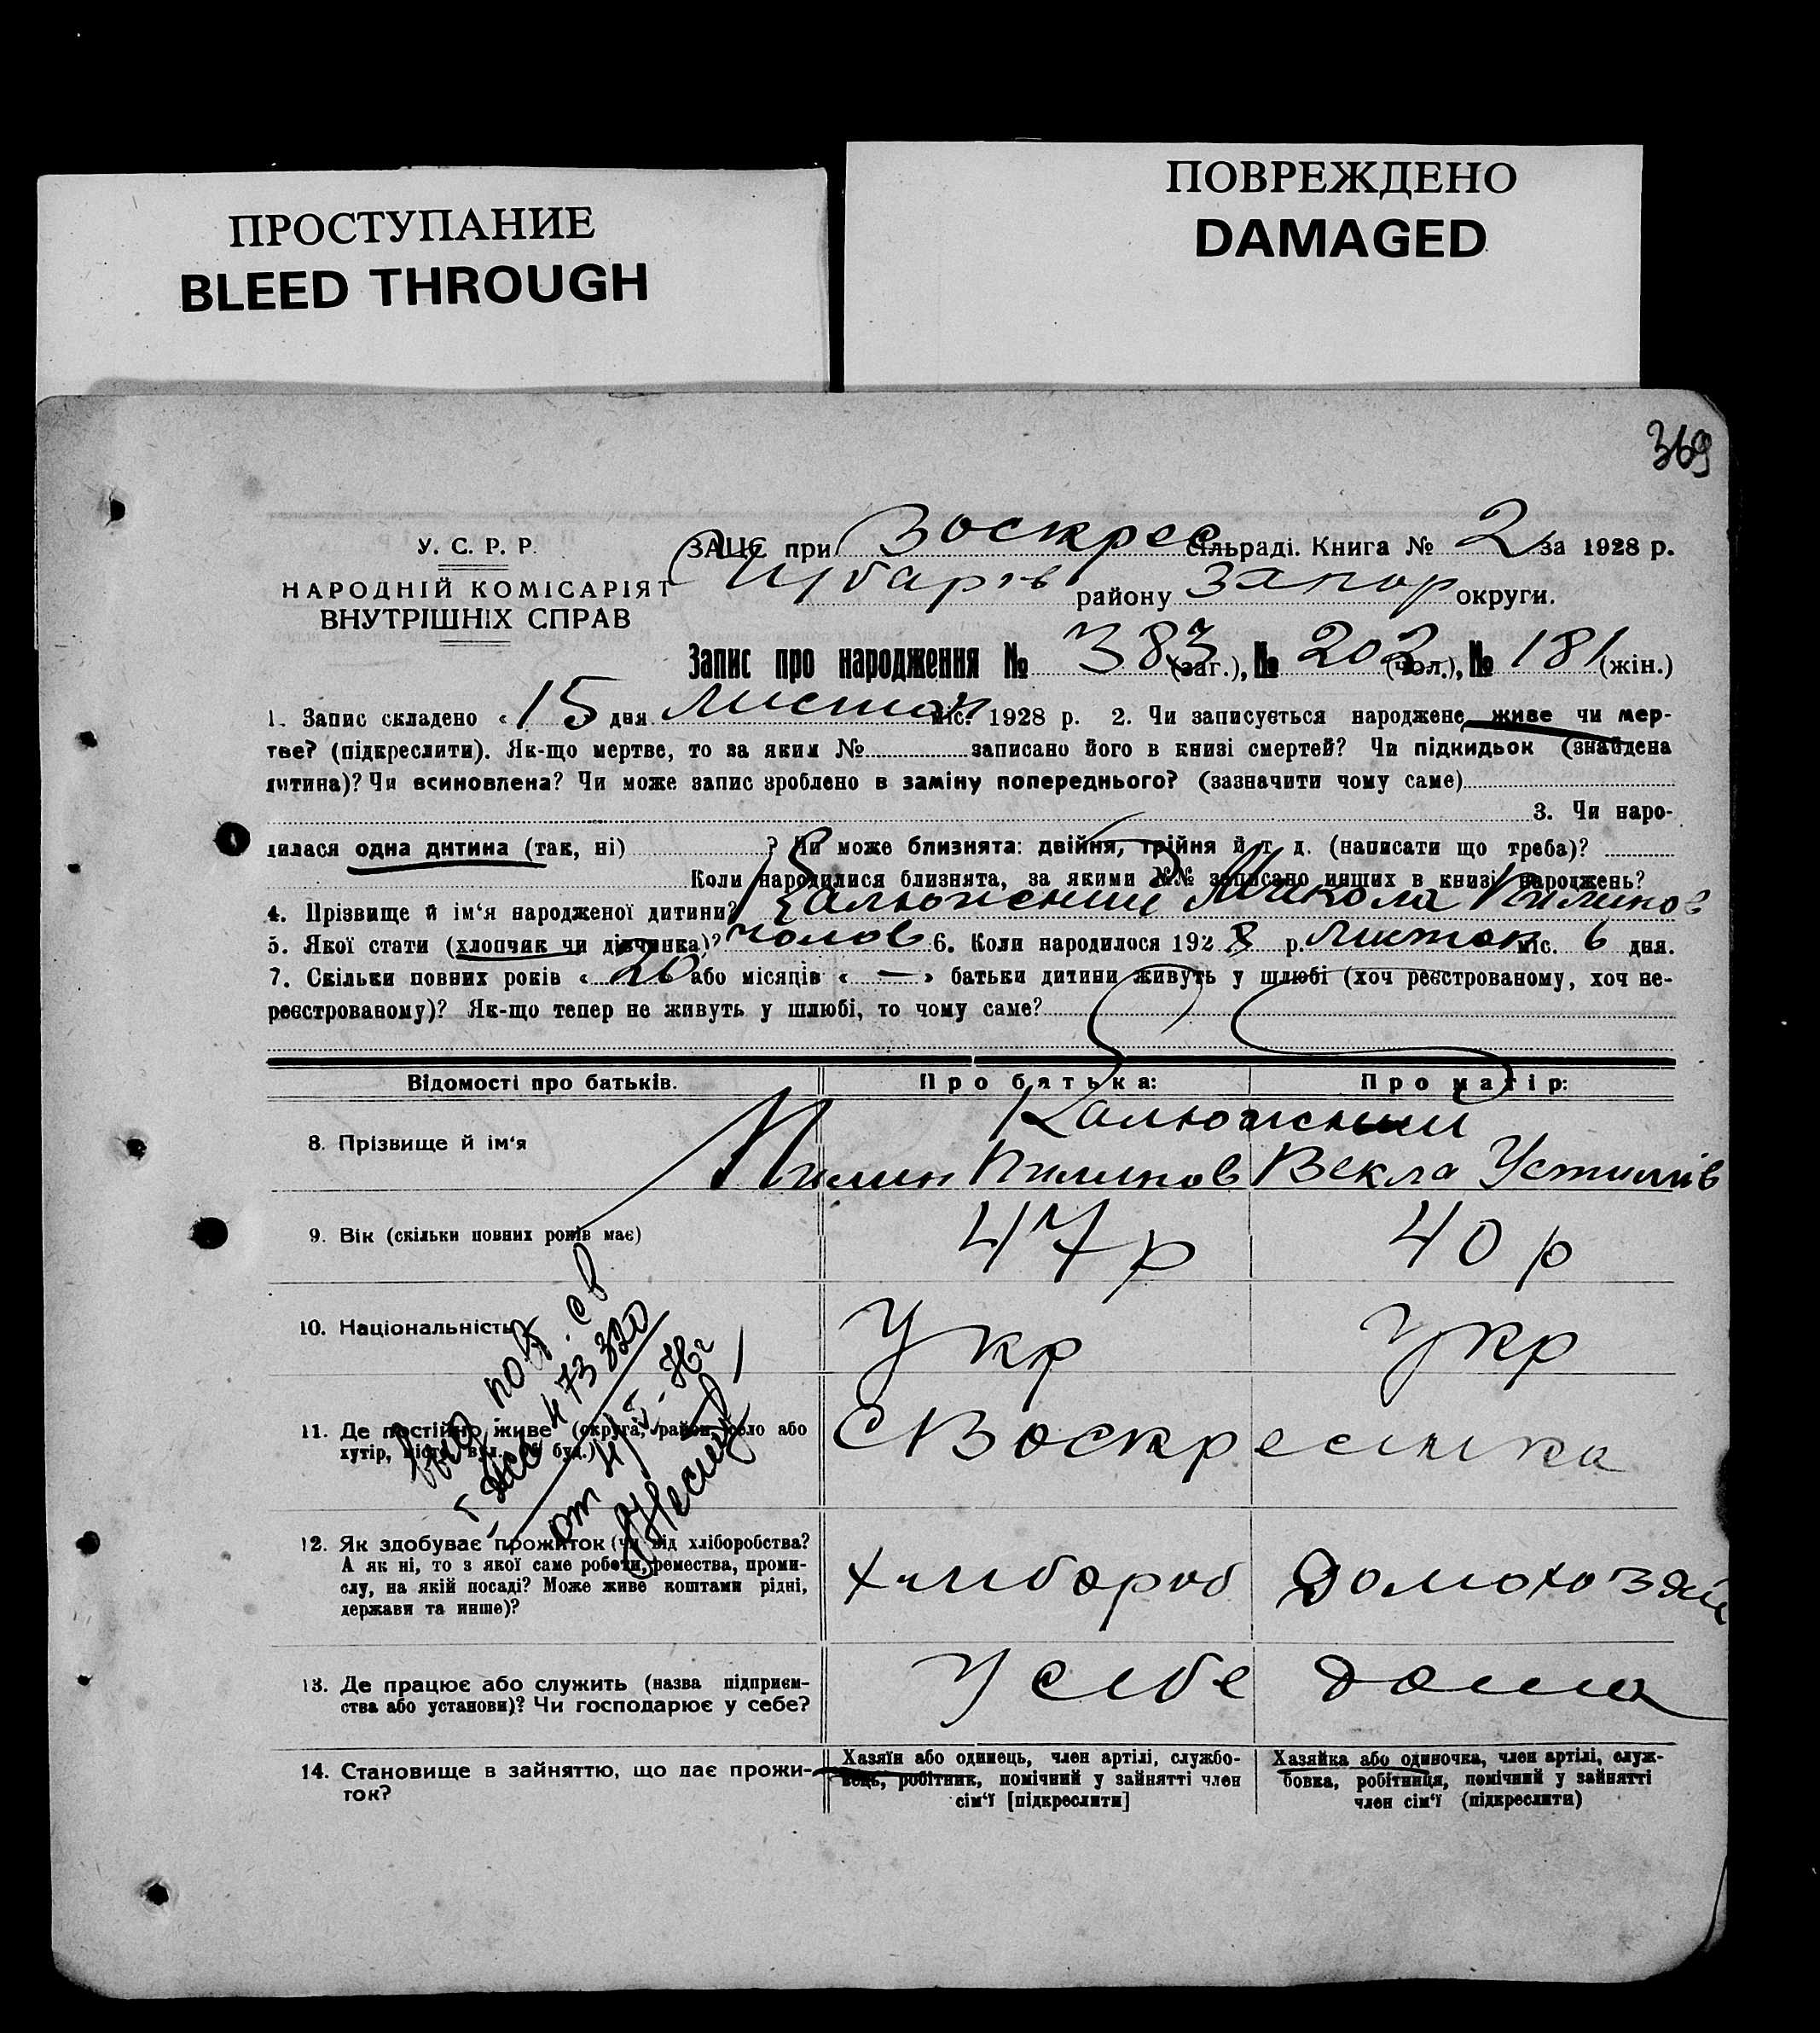 ПРОСТУПАНИЕ
BLEED THROUGH
ПОВРЕЖДЕНО
DAMAGED
369
У. С. Р. Р.
НАРОДНІЙ КОМІСАРІЯТ
ВНУТРІШНІХ СПРАВ
ЗАЦС при Воскрес сільраді. Книга № 2 за 1928 р.
Чубарів району Запор округи.
Запис про народження № 383 (заг.), № 202 (чол.), № 181 (жін.)
1. Запис складено « 15 дня листоп міс. 1928 р. 2. Чи записується народжене живе чи мер-
тве? (підкреслити). Як-що мертве, то за яким № записано його в книзі смертей? Чи підкидьок (знайдена
дитина)? Чи всиновлена? Чи може запис зроблено в заміну попереднього? (зазначити чому саме)
3. Чи наро-
дилася одна дитина (так, ні) ? Чи може близнята: двійня, трійня й т. д. (написати що треба)?
Коли народилися близнята, за якими №№ записано инших в книзі народжень?
4. Прізвище й ім‘я народженої дитини? Калюжний Микола Пилипов
5. Якої стати (хлопчик чи дівчинка)? чолов 6. Коли народилося 1928 р. листоп міс. 6 дня.
7. Скільки повних років « 20 або місяців « — » батьки дитини живуть у шлюбі (хоч реєстрованому, хоч не-
реєстрованому)? Як-що тепер не живуть у шлюбі, то чому саме?
Відомості про батьків.
Про батька:
Про матір:
8. Прізвище й ім‘я
Калюжний
Пилип Пилипов
Векла Устимів
9. Вік (скільки повних років має)
47 р
40 р
10. Національність
Укр
Укр
11. Де постійно живе (округа, район, село або
хутір, місто, вул. № буд.)
С Воскресинка
12. Як здобуває прожиток (чи від хліборобства?
А як ні, то з якої саме роботи, ремества, проми-
слу, на якій посаді? Може живе коштами рідні,
держави та инше)?
хлибороб
Домохозяй
13. Де працює або служить (назва підприєм-
ства або установи)? Чи господарює у себе?
У себе
дома
14. Становище в зайняттю, що дає прожи-
ток?
Хазяїн або одинець, член артілі, службо-
вець, робітник, помічний у зайнятті член
сім‘ї [підкреслити]
Хазяйка або одиночка, член артілі, служ-
бовка, робітниця, помічний у зайнятті
член сім‘ї (підкреслити)
473320